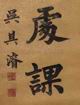 處課
吳其濬